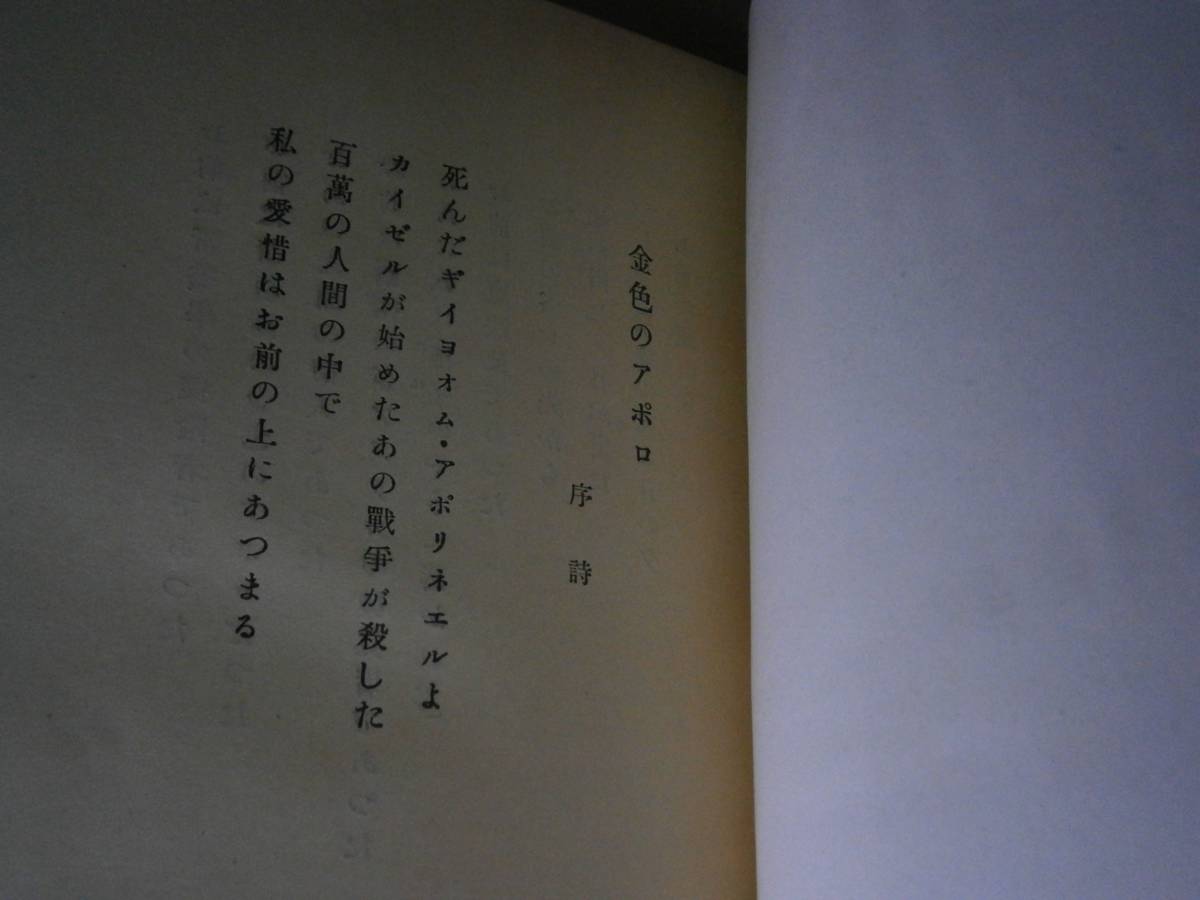 金色のアポロ
序詩
死んだギイヨオム・アポリネエルよ
カイゼルが始めたあの戰爭が殺した
百萬の人間の中で
私の愛惜はお前の上にあつまる